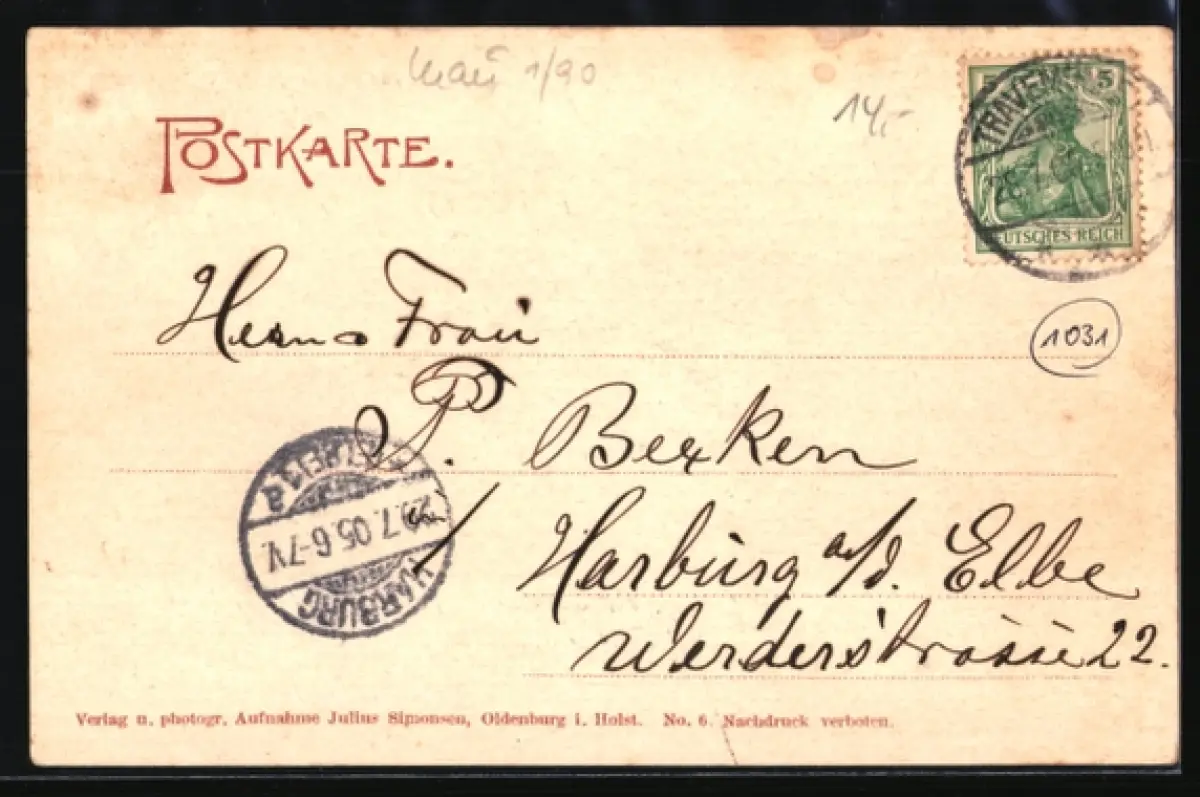 1/90
14,-
POSTKARTE.
5
TRAVEM
DEUTSCHES REICH
1031
Frau
P. Becken
Harburg a/d. Elbe
Werderstrasse 22.
HARBURG
29.7.05.6-7V.
Verlag u. photogr. Aufnahme Julius Simonsen, Oldenburg i. Holst. No. 6. Nachdruck verboten.